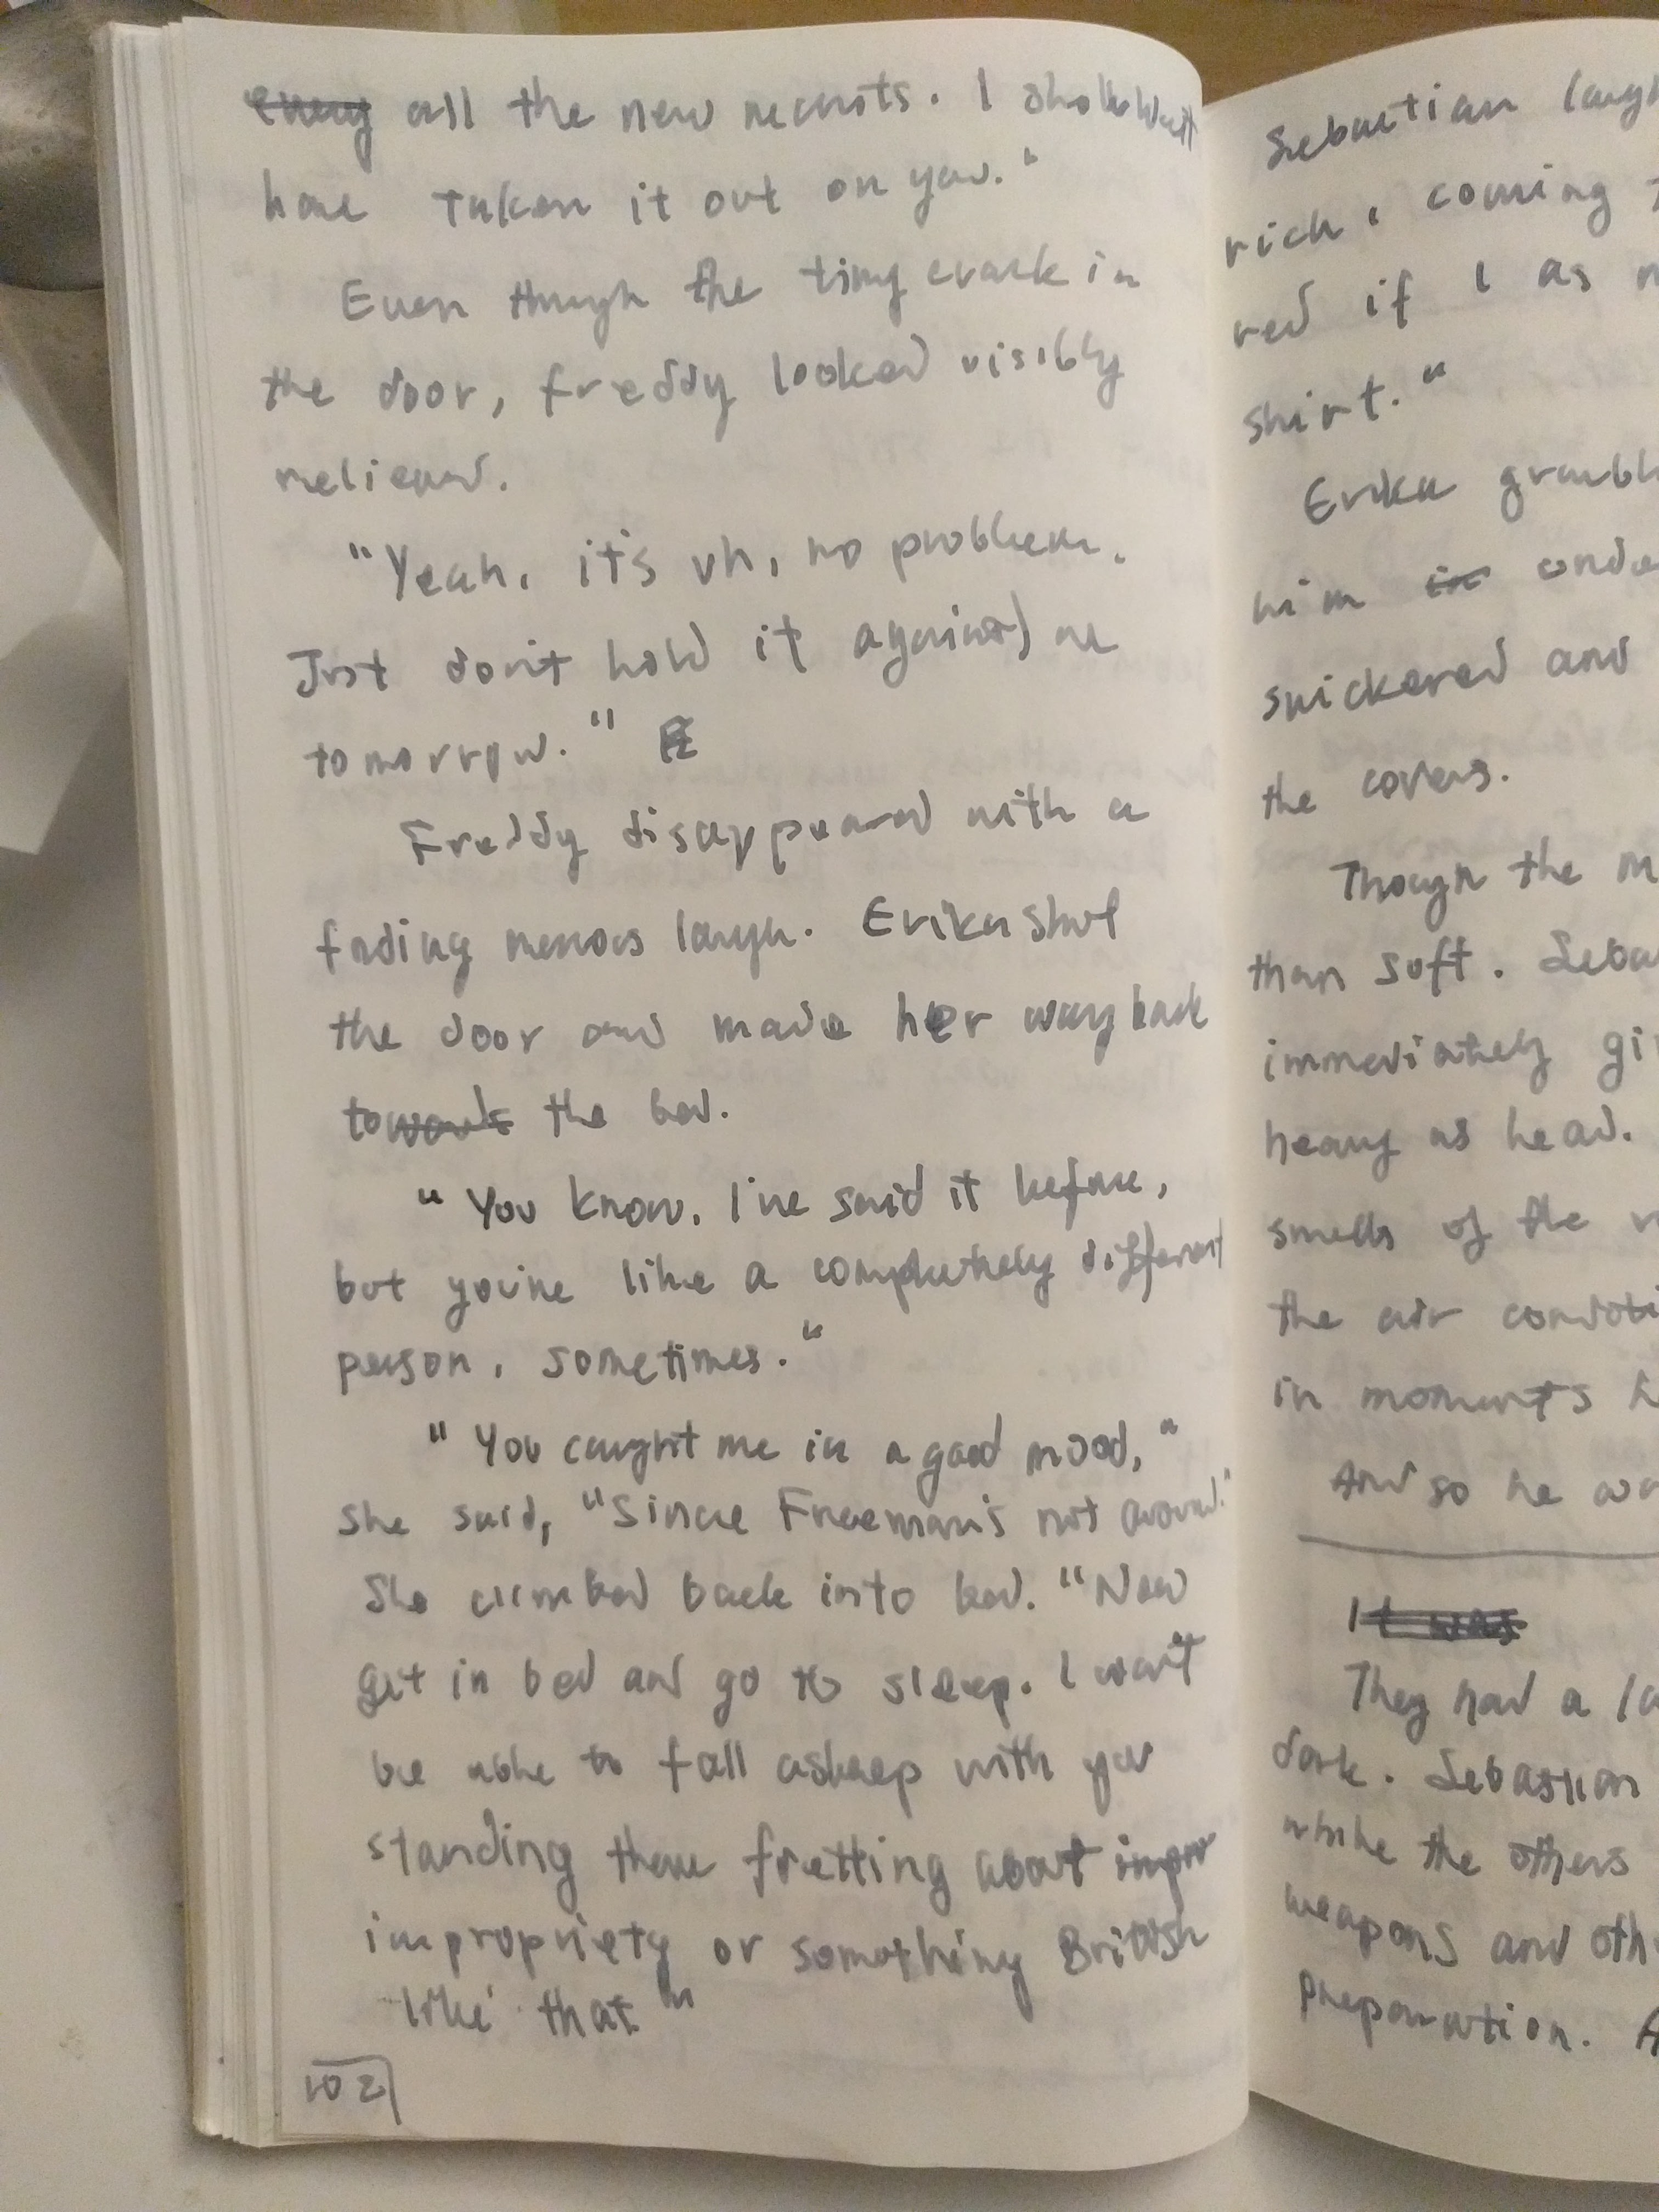 all the new recruits. I shouldn't
have taken it out on you."
Even though the tiny crack in
the door, Freddy looked visibly
relieved.
"Yeah, it's uh, no problem.
Just don't hold it against me
tomorrow."
Freddy disappeared with a
fading nervous laugh. Erika shut
the door and made her way back
to the bed.
"You know, I've said it before,
but you're like a completely different
person, sometimes."
"You caught me in a good mood,"
she said, "Since Freeman's not around."
She climbed back into bed. "Now
get in bed and go to sleep. I won't
be able to fall asleep with you
standing there fretting about
impropriety or something British
like that"
102
Sebastian
rich, coming
red if I as
shirt."
Erika
him
snickered and
the covers.
Though the
than soft.
immediately
heavy as head.
smells of the
the air
in moments
And so he
They had a
dark. Sebastian
while the others
weapons and
preparation.